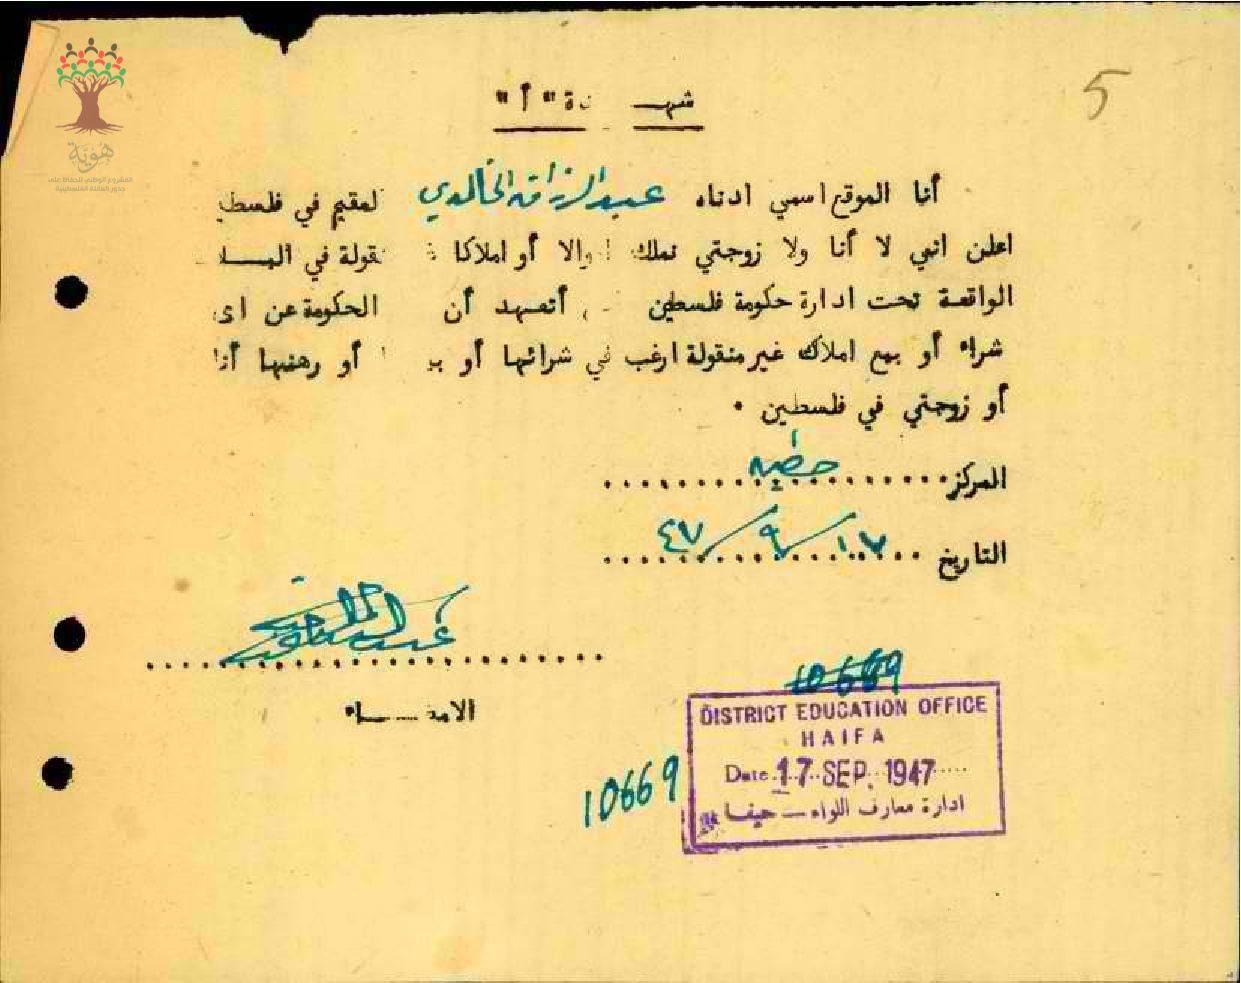 هوية
المشروع الوطني للحفاظ على
جذور العائلة الفلسطينية
5
"أ"
أنا الموقع اسمي ادناه عبد الرزاق الخالدي لمقيم في فلسطي
اعلن انني لا أنا ولا زوجتي نملك والا أو املاكا نقولة في
الواقعة تحت ادارة حكومة فلسطين أتعهد أن الحكومة عن اى
شراء أو بيع املاك غير منقولة ارغب في شرائها أو أو رهنها أنا
أو زوجتي في فلسطين .
المركز
التاريخ ١٧/٩/٤٧
10669
DISTRICT EDUCATION OFFICE
HAIFA
Date 17 SEP. 1947
ادارة معارف اللواء - حيفا
10669